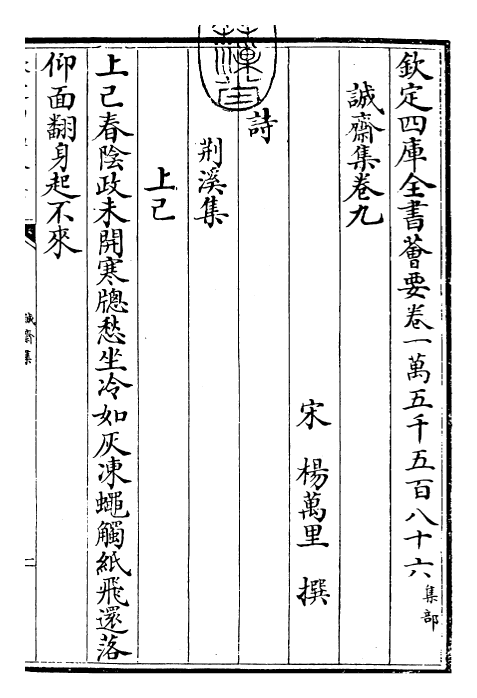 欽定四庫全書薈要卷一萬五千五百八十六集部
誠齋集卷九
宋楊萬里撰
詩
荆溪集
上已
上已春陰政未開寒牕愁坐冷如灰凍蠅觸紙飛還落
仰面翻身起不來
誠齋集